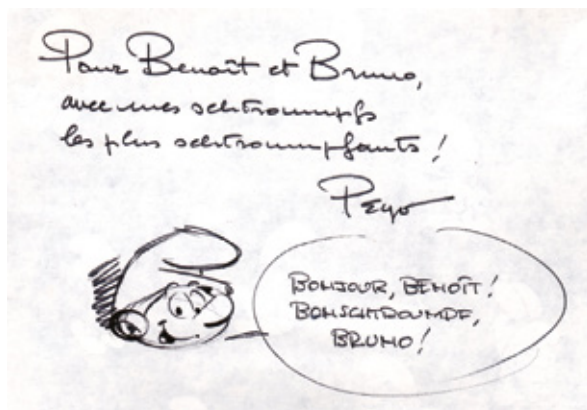 Pour Benoît et Bruno,
avec mes schtroumpfs
les plus schtroumpfants !
Peyo
BONJOUR, BENOÎT !
BONSCHTROUMPF,
BRUNO !